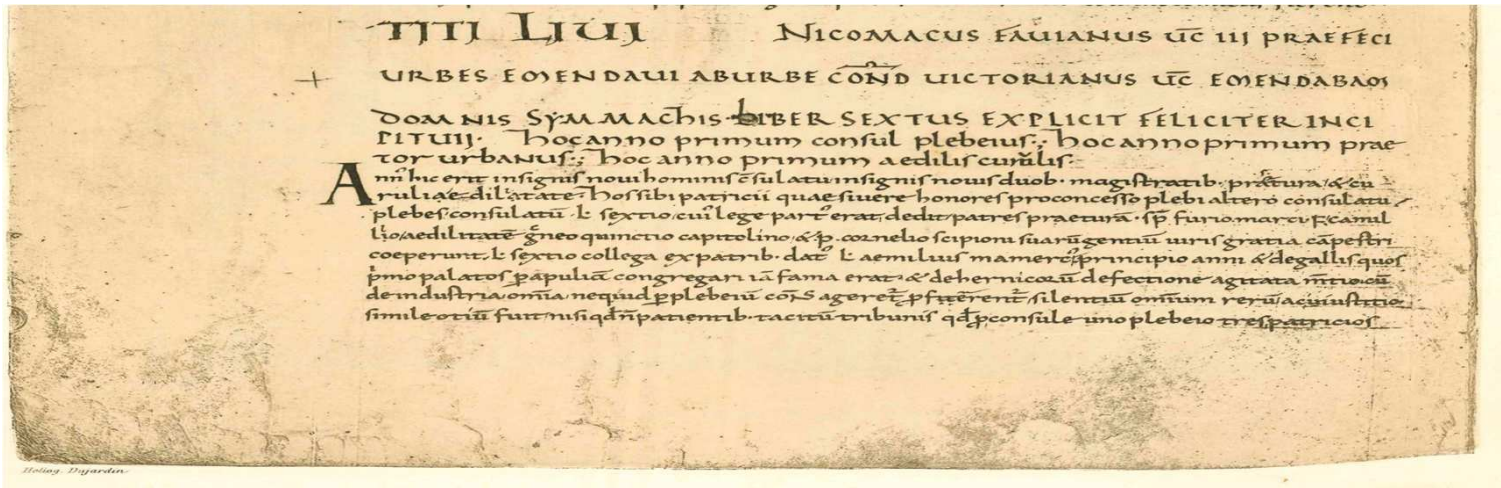 TITI LIUI NICOMACUS FAUIANUS UC̅ III PRAEFECI
URBES EMENDAUI AB URBE CO̅ND UICTORIANUS UC̅ EMENDABAM
DOMNIS SYMMACHIS LIBER SEXTUS EXPLICIT FELICITER INCI
PIT UII· hoc anno primum consul plebeius·, hoc anno primum prae
tor urbanus·, hoc anno primum aedilis curulis·
Ann᷒ hic erit insignis noui hominis c̅sulatu insignis nouis duob· magistratib· praetura & cu
ruli aedilitate· hos sibi patricii quaesiuere honores pro concesso plebi altero consulatu
plebes consulatu̅· L· sextio cui᷒ lege part᷒ erat, dedit, patres praetura̅· sp̅ furio marci· F· camil
lio, aedilitate̅ g̅neo quinctio capitolino, & p· cornelio scipioni suaru̅ gentiu̅ uiris gratia ca̅pestri
coeperunt, L· sextio collega ex patrib· dat᷒ L· aemilius mamerc᷒, principio anni & de gallis quos
p̍mo palatos p̲ apulia̅ congregari ia̅ fama erat· & de hernicoru̅ defectione agitata m̅tio, cu̅
de industria om̅ia ne quid p̲ plebeiu̅ co̅s ageret᷒ p̲ fiterent᷒, silentiu̅ omnium reru̅ ac iustitio
simile otiu̅ fuit, nisi qd̅ n̅ patientib· tacitu̅ tribunis qd̅ p̲ consule uno plebeio tres patricios
Heliog. Dujardin